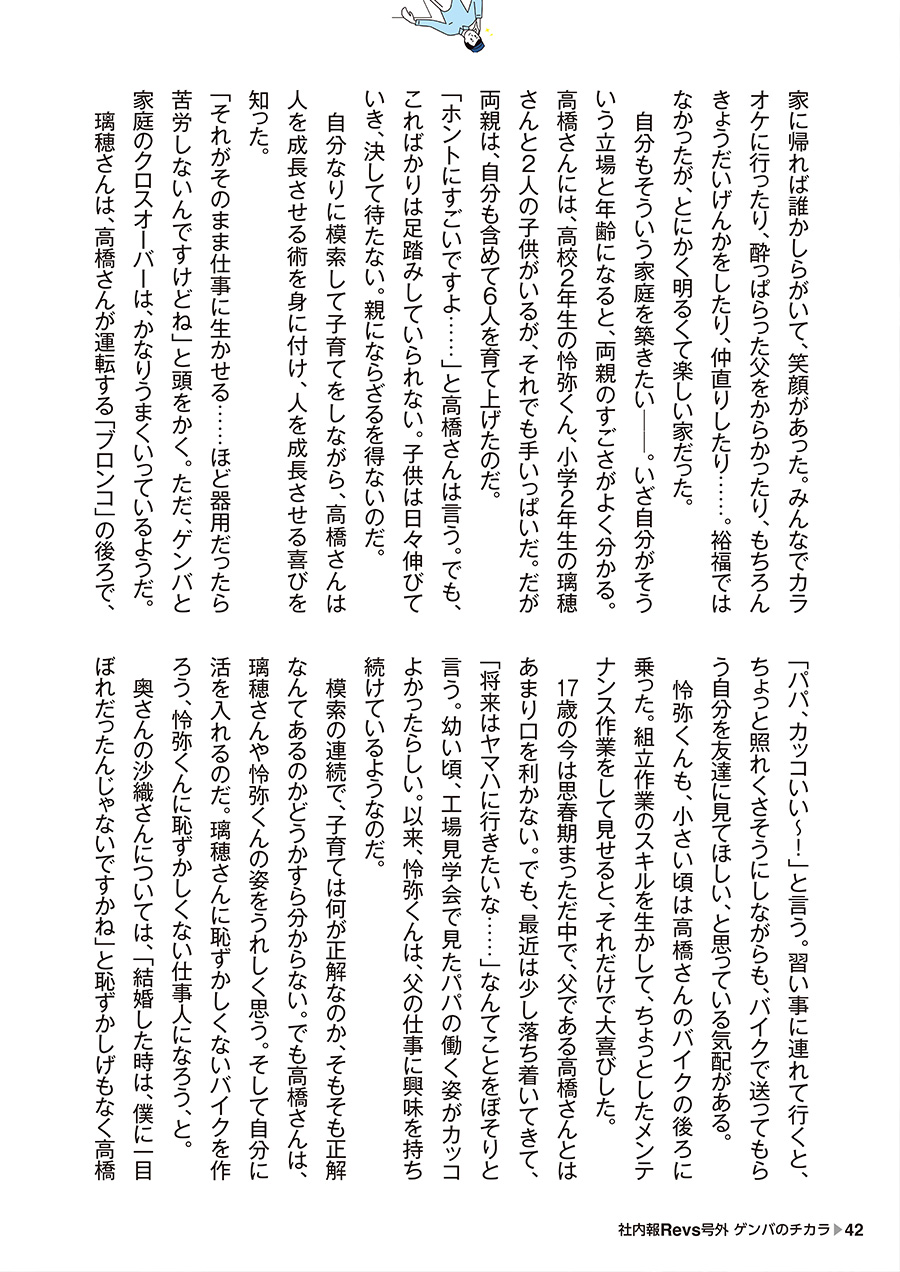 家に帰れば誰かしらがいて、笑顔があった。みんなでカラ
オケに行ったり、酔っぱらった父をからかったり、もちろん
きょうだいげんかをしたり、仲直りしたり……。裕福では
なかったが、とにかく明るくて楽しい家だった。
自分もそういう家庭を築きたい――。いざ自分がそう
いう立場と年齢になると、両親のすごさがよく分かる。
高橋さんには、高校2年生の怜弥くん、小学2年生の璃穂
さんと2人の子供がいるが、それでも手いっぱいだ。だが
両親は、自分も含めて6人を育て上げたのだ。
「ホントにすごいですよ……」と高橋さんは言う。でも、
こればかりは足踏みしていられない。子供は日々伸びて
いき、決して待たない。親にならざるを得ないのだ。
自分なりに模索して子育てをしながら、高橋さんは
人を成長させる術を身に付け、人を成長させる喜びを
知った。
「それがそのまま仕事に生かせる……ほど器用だったら
苦労しないんですけどね」と頭をかく。ただ、ゲンバと
家庭のクロスオーバーは、かなりうまくいっているようだ。
璃穂さんは、高橋さんが運転する「ブロンコ」の後ろで、
「パパ、カッコいい〜！」と言う。習い事に連れて行くと、
ちょっと照れくさそうにしながらも、バイクで送ってもら
う自分を友達に見てほしい、と思っている気配がある。
怜弥くんも、小さい頃は高橋さんのバイクの後ろに
乗った。組立作業のスキルを生かして、ちょっとしたメンテ
ナンス作業をして見せると、それだけで大喜びした。
17歳の今は思春期まっただ中で、父である高橋さんとは
あまり口を利かない。でも、最近は少し落ち着いてきて、
「将来はヤマハに行きたいな……」なんてことをぼそりと
言う。幼い頃、工場見学会で見たパパの働く姿がカッコ
よかったらしい。以来、怜弥くんは、父の仕事に興味を持ち
続けているようなのだ。
模索の連続で、子育ては何が正解なのか、そもそも正解
なんてあるのかどうかすら分からない。でも高橋さんは、
璃穂さんや怜弥くんの姿をうれしく思う。そして自分に
活を入れるのだ。璃穂さんに恥ずかしくないバイクを作
ろう、怜弥くんに恥ずかしくない仕事人になろう、と。
奥さんの沙織さんについては、「結婚した時は、僕に一目
ぼれだったんじゃないですかね」と恥ずかしげもなく高橋
社内報Revs号外 ゲンバのチカラ▶42